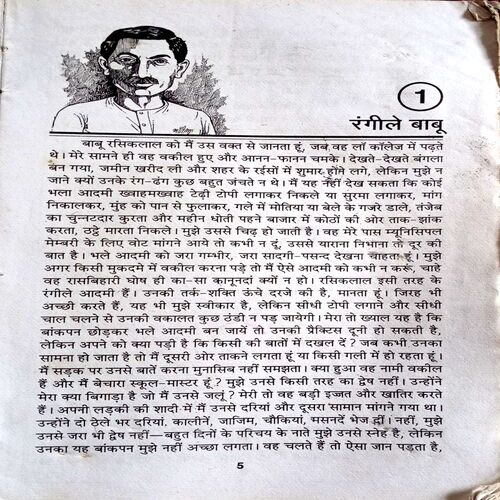 1
रंगीले बाबू
बाबू रसिकलाल को मैं उस वक्त से जानता हूं, जब वह लॉ कॉलेज में पढ़ते
थे। मेरे सामने ही वह वकील हुए और आनन-फानन चमके। देखते-देखते बंगला
बन गया, जमीन खरीद ली और शहर के रईसों में शुमार होने लगे, लेकिन मुझे न
जाने क्यों उनके रंग-ढंग कुछ बहुत जंचते न थे। मैं यह नहीं देख सकता कि कोई
भला आदमी ख्वाहमख्वाह टेढ़ी टोपी लगाकर निकले या सुरमा लगाकर, मांग
निकालकर, मुंह को पान से फुलाकर, गले में मोतिया या बेले के गजरे डाले, तंजेब
का चुन्नटदार कुरता और महीन धोती पहने बाजार में कोठों की ओर ताक-झांक
करता, ठट्ठे मारता निकले। मुझे उससे चिढ़ हो जाती है। वह मेरे पास म्यूनिसिपल
मेम्बरी के लिए वोट मांगने आये तो कभी न दूं, उससे याराना निभाना तो दूर की
बात है। भले आदमी को जरा गम्भीर, जरा सादगी-पसन्द देखना चाहता हूं। मुझे
अगर किसी मुकदमे में वकील करना पड़े तो मैं ऐसे आदमी को कभी न करूं, चाहे
वह रासबिहारी घोष ही का-सा कानूनदां क्यों न हो। रसिकलाल इसी तरह के
रंगीले आदमी हैं। उनकी तर्क-शक्ति ऊंचे दरजे की है, मानता हूं। जिरह भी
अच्छी करते हैं, यह भी मुझे स्वीकार है, लेकिन सीधी टोपी लगाने और सीधी
चाल चलने से उनकी वकालत कुछ ठंडी न पड़ जायेगी। मेरा तो ख्याल यह है कि
बांकपन छोड़कर भले आदमी बन जायें तो उनकी प्रैक्टिस दूनी हो सकती है,
लेकिन अपने को क्या पड़ी है कि किसी की बातों में दखल दें? जब कभी उनका
सामना हो जाता है तो मैं दूसरी ओर ताकने लगता हूं या किसी गली में हो रहता हूं।
मैं सड़क पर उनसे बातें करना मुनासिब नहीं समझता। क्या हुआ वह नामी वकील
हैं और मैं बेचारा स्कूल-मास्टर हूं? मुझे उनसे किसी तरह का द्वेष नहीं। उन्होंने
मेरा क्या बिगाड़ा है जो मैं उनसे जलूं? मेरी तो वह बड़ी इज्जत और खातिर करते
हैं। अपनी लड़की की शादी में मैं उनसे दरियां और दूसरा सामान मांगने गया था।
उन्होंने दो ठेले भर दरियां, कालीनें, जाजिम, चौकियां, मसनदें भेज दीं। नहीं, मुझे
उनसे जरा भी द्वेष नहीं—बहुत दिनों के परिचय के नाते मुझे उनसे स्नेह है, लेकिन
उनका यह बांकपन मुझे नहीं अच्छा लगता। वह चलते हैं तो ऐसा जान पड़ता है,
5